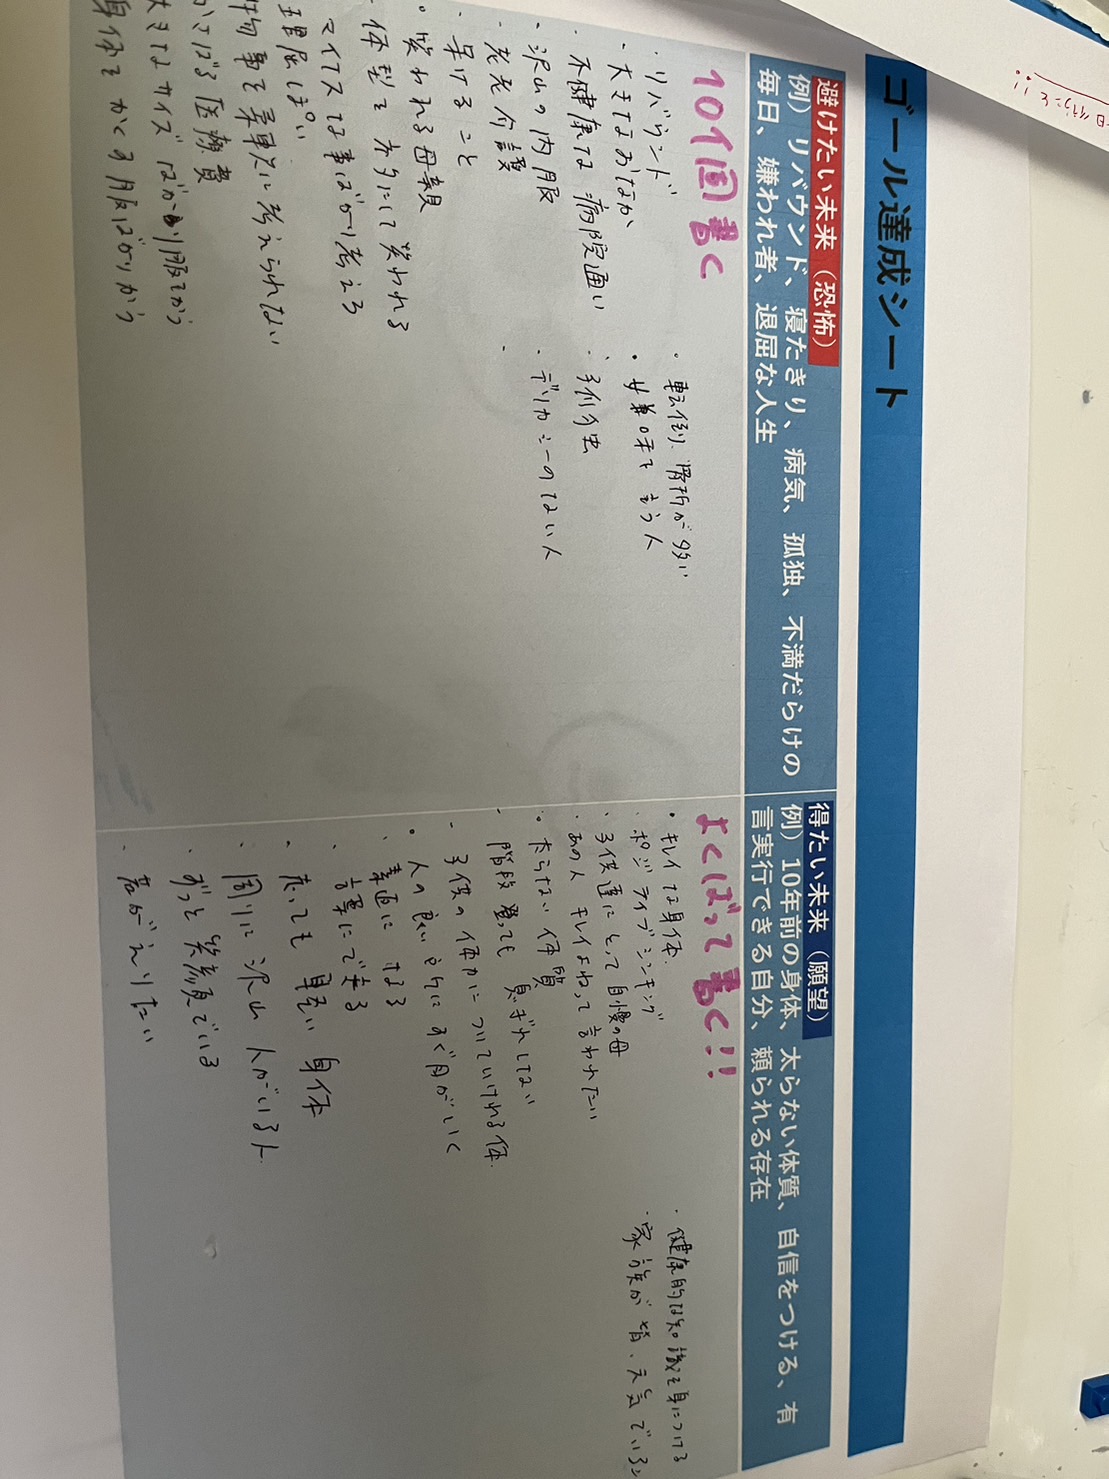 ゴール達成シート
避けたい未来（恐怖）
例）リバウンド、寝たきり、病気、孤独、不満だらけの
毎日、嫌われ者、退屈な人生
10個書く
・リバウンド
・大きなおなか
・不健康な 病院通い
・沢山の内服
・老老介護
・呆けること
・笑われる母親
・体型をネタにして笑われる
マイナスな事ばかり考える
理屈ぽい
物事を柔軟に考えられない
かさばる医療費
大きなサイズばかり服をかう
身体をかくす服ばかりかう
・転倒、骨折が多い
・嫌味を言う人
・デリカシーのない人
得たい未来（願望）
例）10年前の身体、太らない体質、自信をつける、有
言実行できる自分、頼られる存在
よくばって書く!!
・キレイな身体
・ポジティブシンキング
・子供達にとって自慢の母
・あの人 キレイよねって言われたい
・太らない体質
・階段登っても 息ぎれしない
・子供の体力についていけれる体
・人の良い所にすぐ目がいく
・素直になる
・言葉にできる
・走っても 軽い 身体
・周りに 沢山 人がいる人
・ずっと 笑顔でいる
・若がえりたい
・健康的な知識を身につける
・家族が皆、元気でいる